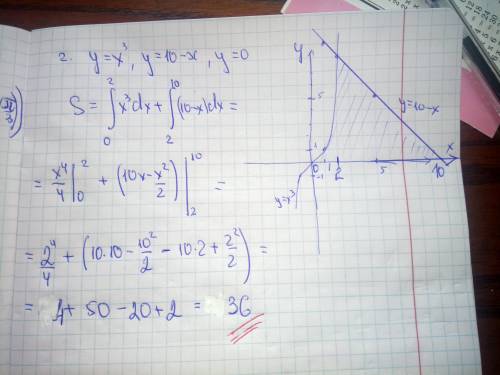 2. y=x³, y=10-x, y=0
S = ∫₀² x³dx + ∫₂¹⁰ (10-x)dx =
= x⁴/4 |₀² + (10x - x²/2) |₂¹⁰ =
= 2⁴/4 + (10·10 - 10²/2 - 10·2 + 2²/2) =
= 4 + 50 - 20 + 2 = 36
y
5
1
y=10-x
x
0 1 2 5 10
-1
y=x³